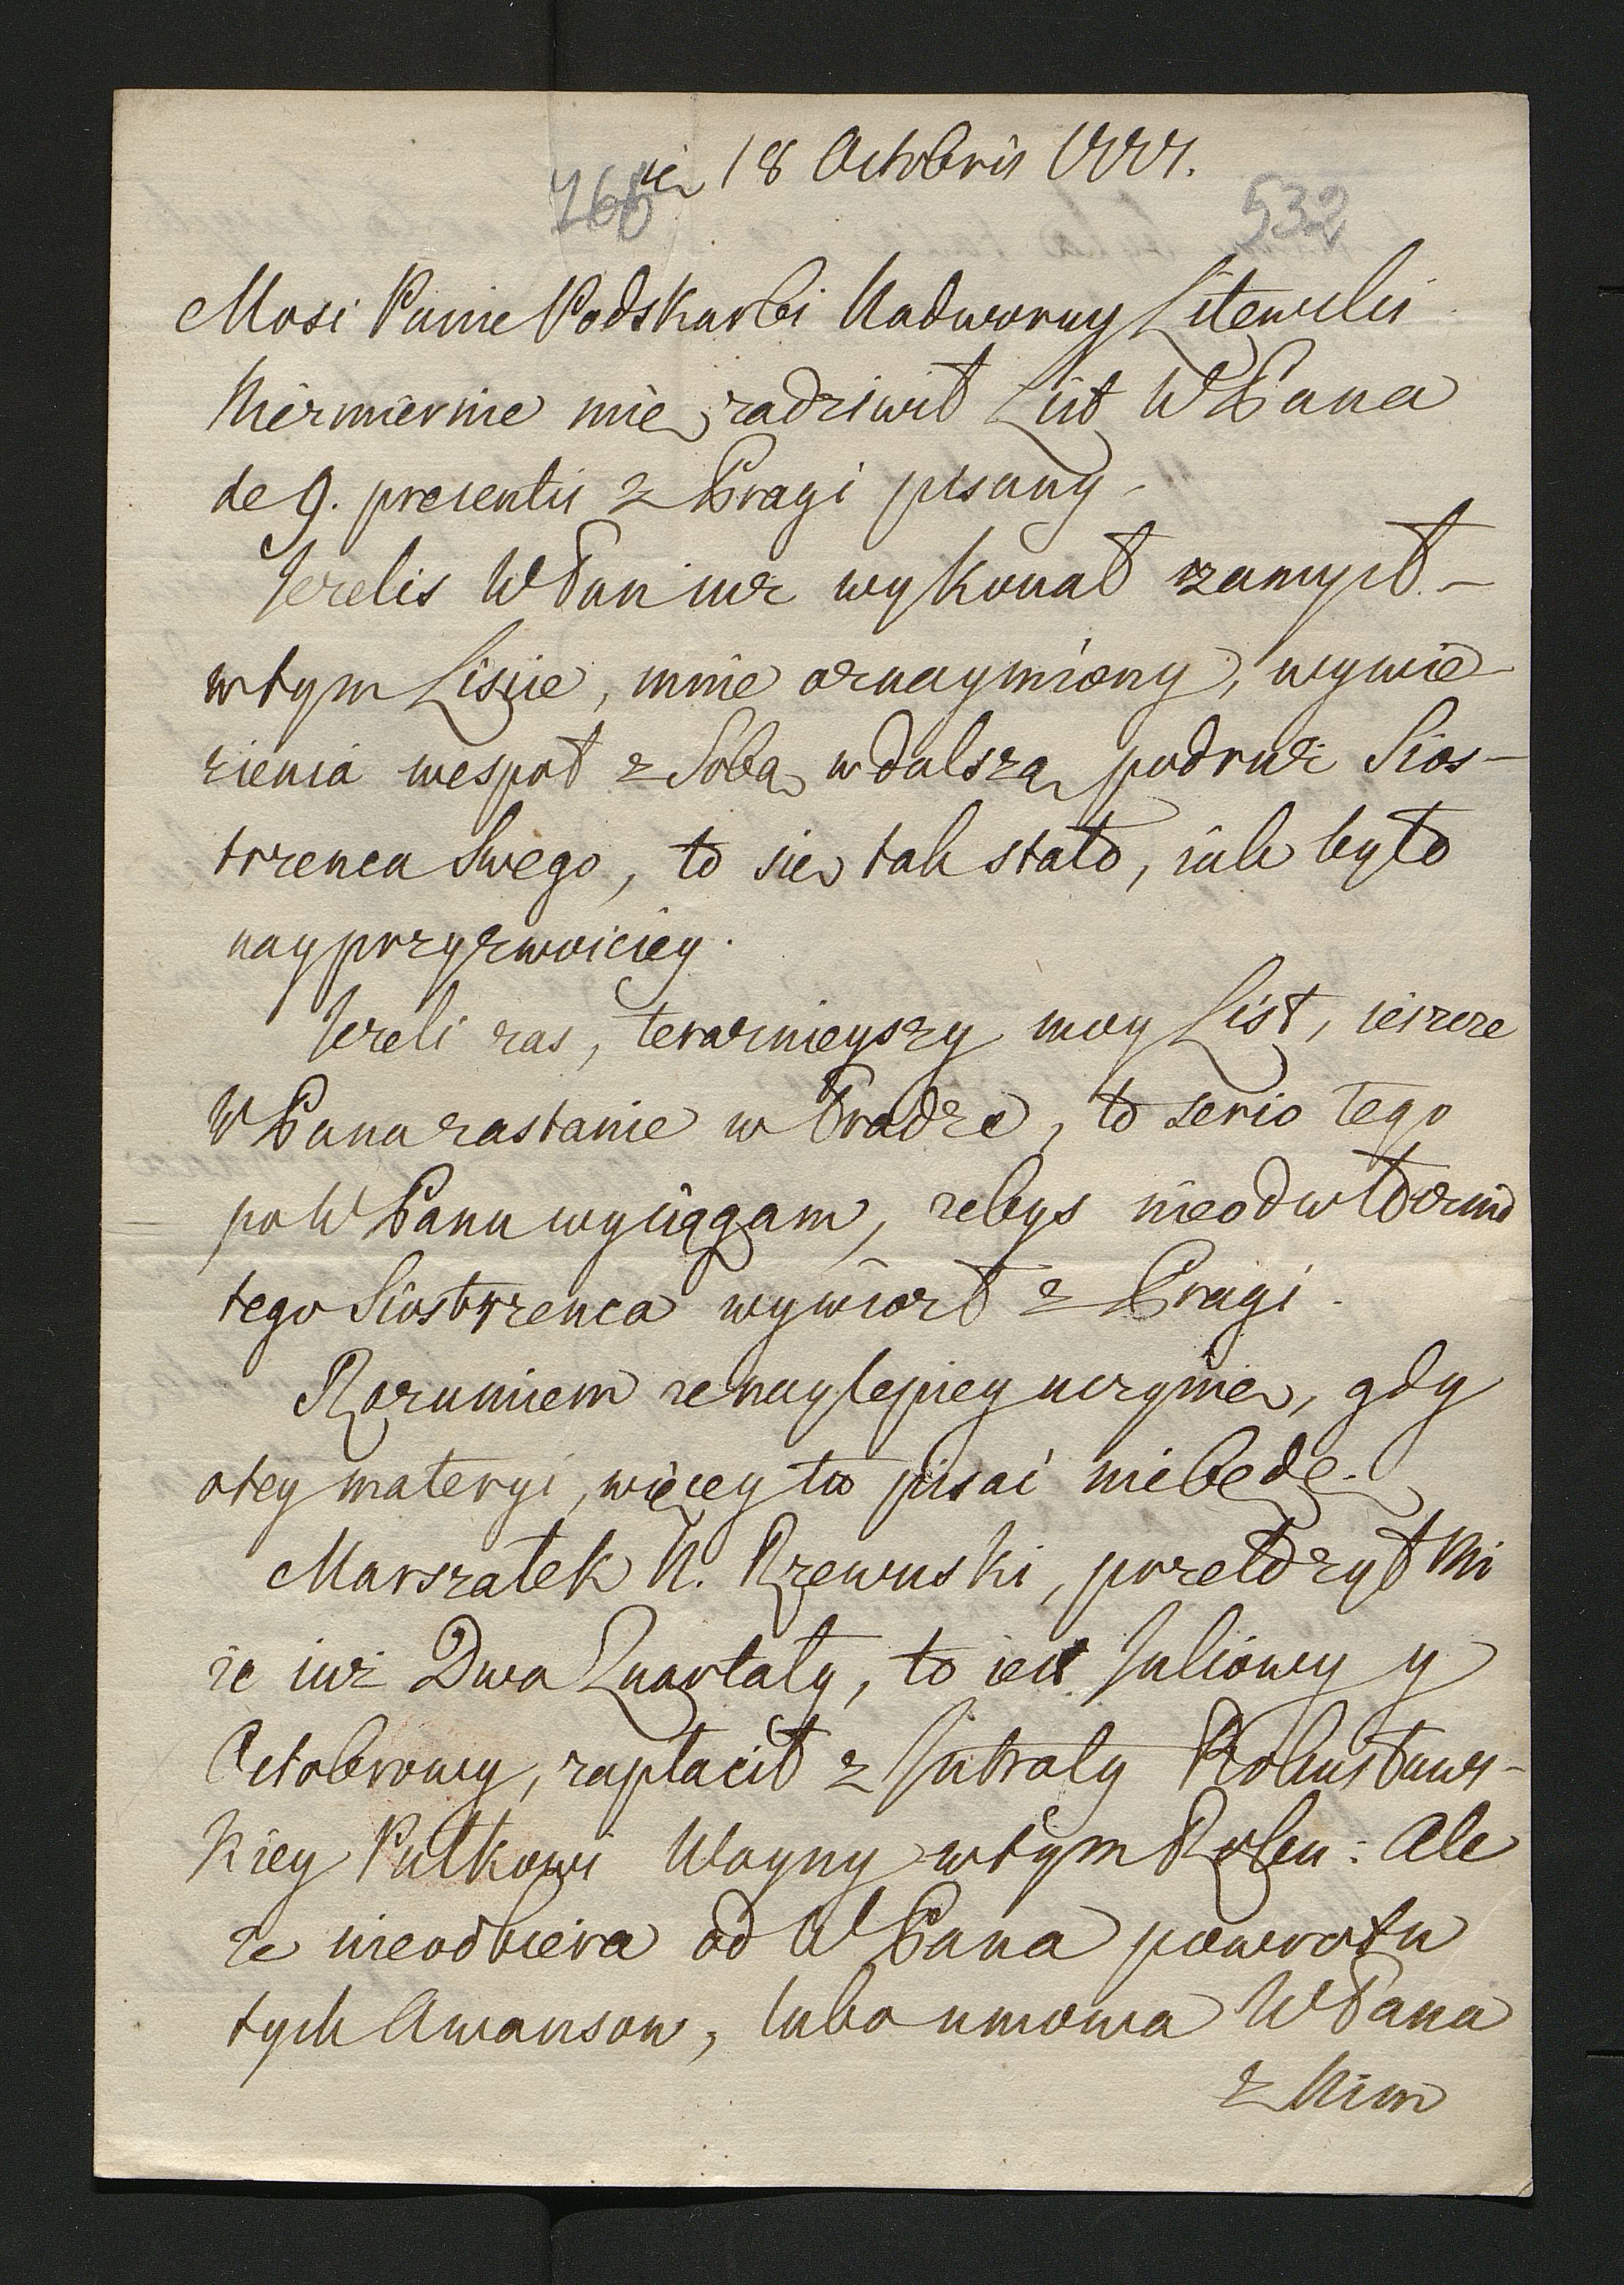 die 18 Octobris 1777.
766 532
Mosi Panie Podskarbi Nadworny Litewski
Niezmiernie mię zadziwił List WPana
de 9. presentis z Pragi pisany.
Jezelis WPan iuz wykonał zamysł
w tym Liście, mnie oznaymiony, wywie-
zienia wespoł z Sobą w dalszą podruż Sios-
trzenca Swego, to się tak stało, iak było
nayprzyzwoiciey.
Jezeli zas, terażnieyszy moy List, ieszcze
WPana zastanie w Pradze, to serio tego
po WPanu wyciągam, zebys nieodwłocznie
tego Siostrzenca wywiozł z Pragi.
Rozumiem ze naylepiey uczynię, gdy
o tey materyi, więcey tu pisać niebędę.
Marszałek N. Rzewuski, przełożył mi
że iuż Dwa Quartały, to iest Juliowy y
Octobrowy, zapłacił z Intraty Kohust
kiey Pułkowi Woyny w tym Roku: Ale
ze nieodbiera od WPana powrotu
tych Awansow, lubo umowa WPana
z Nim